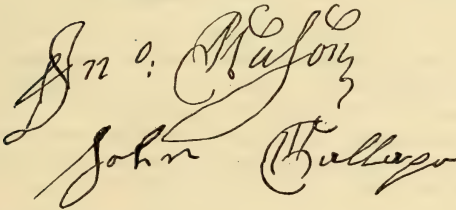 Jno: Mason
John Gallago